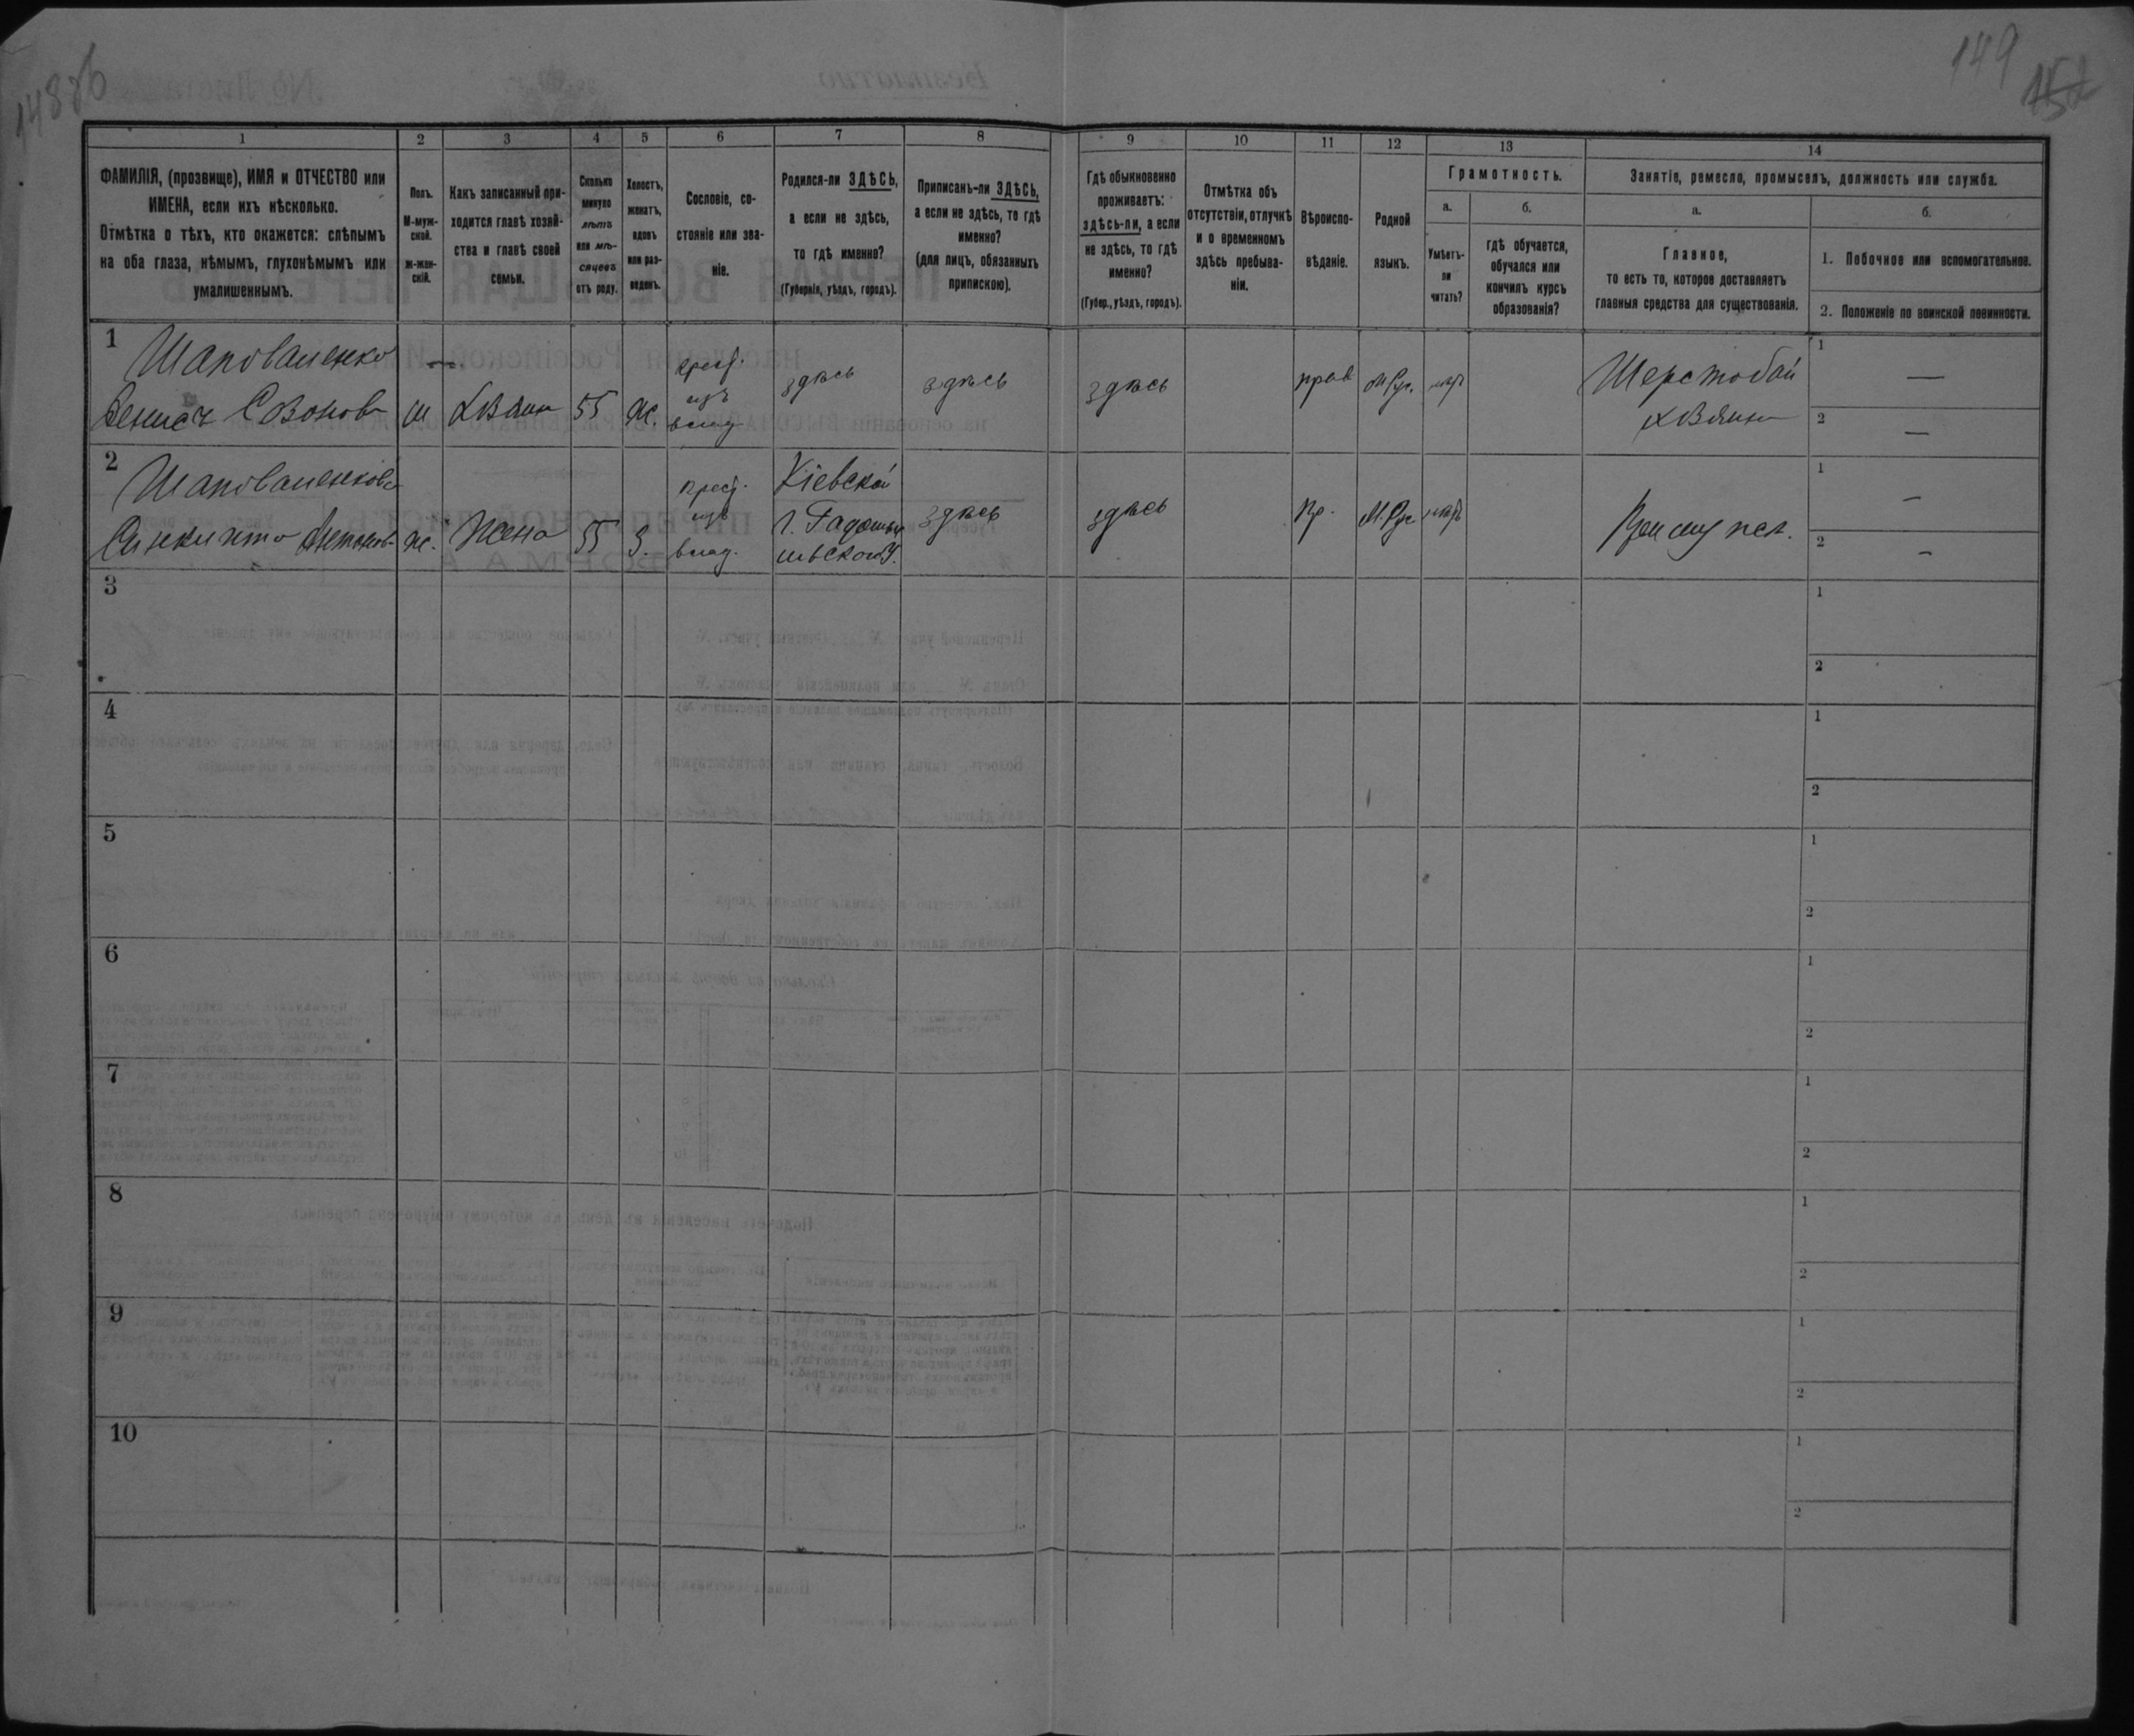 148об
149
1
2
3
4
5
6
7
8
9
10
11
12
13
14
ФАМИЛІЯ, (прозвище), ИМЯ и ОТЧЕСТВО или
ИМЕНА, если ихъ нѣсколько.
Отмѣтка о тѣхъ, кто окажется: слѣпымъ
на оба глаза, нѣмымъ, глухонѣмымъ или
умалишеннымъ.
Полъ.
М-муж-
ской.
ж-жен-
скій.
Какъ записанный при-
ходится главѣ хозяй-
ства и главѣ своей
семьи.
Сколько
минуло
лѣтъ
или мѣ-
сяцевъ
отъ роду.
Холостъ,
женатъ,
вдовъ
или раз-
веденъ.
Сословіе, со-
стояніе или зва-
ніе.
Родился-ли ЗДѢСЬ,
а если не здѣсь,
то гдѣ именно?
(Губернія, уѣздъ, городъ).
Приписанъ-ли ЗДѢСЬ,
а если не здѣсь, то гдѣ
именно?
(для лицъ, обязанныхъ
припискою).
Гдѣ обыкновенно
проживаетъ:
здѣсь-ли, а если
не здѣсь, то гдѣ
именно?
(Губер., уѣздъ, городъ).
Отмѣтка объ
отсутствіи, отлучкѣ
и о временномъ
здѣсь пребыва-
ніи.
Вѣроиспо-
вѣданіе.
Родной
языкъ.
Грамотность.
а.
Умѣетъ-
ли
читать?
б.
гдѣ обучается,
обучался или
кончилъ курсъ
образованія?
Занятіе, ремесло, промыселъ, должность или служба.
а.
Главное,
то есть то, которое доставляетъ
главныя средства для существованія.
б.
1. Побочное или вспомогательное.
2. Положеніе по воинской повинности.
1
Шаповаленко
Созонов
м
хвяин
55
ж.
крест.
изъ
влад.
здѣсь
здѣсь
здѣсь
прав
М.Рус.
нѣтъ
Шерстобой
хвяин
1 —
2 —
2
Шаповаленкова
ж.
Жена
55
З.
крест.
изъ
влад.
Кіевской
г.
здѣсь
здѣсь
Пр.
М.Рус
нѣтъ
1 —
2 —
3
1
2
4
1
2
5
1
2
6
1
2
7
1
2
8
1
2
9
1
2
10
1
2